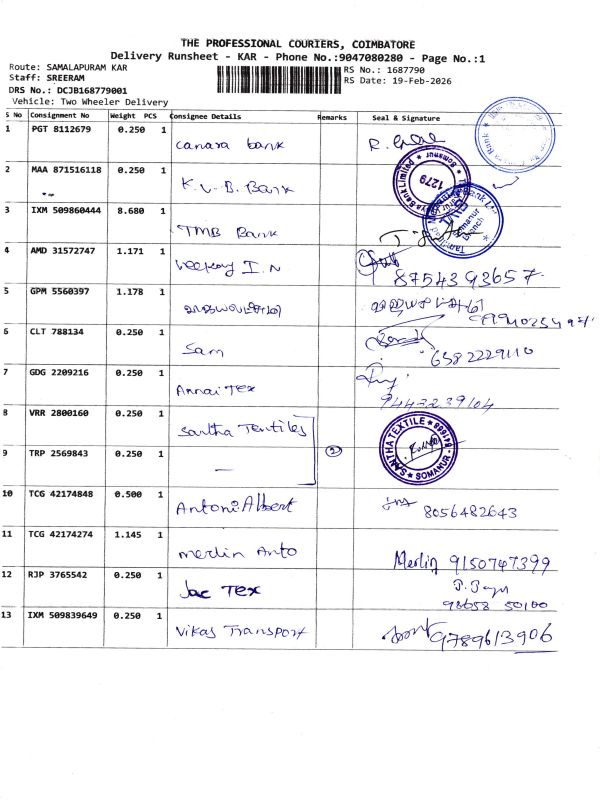 THE PROFESSIONAL COURIERS, COIMBATORE
Delivery Runsheet - KAR - Phone No.:9047080280 - Page No.:1
Route: SAMALAPURAM KAR
RS No.: 1687790
Staff: SREERAM
RS Date: 19-Feb-2026
DRS No.: DCJB168779001
Vehicle: Two Wheeler Delivery
S No Consignment No Weight PCS Consignee Details Remarks Seal & Signature
1 PGT 8112679 0.250 1 canara bank
2 MAA 871516118 0.250 1 K.V.B. Bank
1279 Somanur
3 IXM 509860444 8.680 1 TMB Bank
Somanur Branch
4 AMD 31572747 1.171 1 Veekay I.N 8754393657
5 GPM 5560397 1.178 1
6 CLT 788134 0.250 1 Sam 6382229110
7 GDG 2209216 0.250 1 Annai Tex 9443239104
8 VRR 2800160 0.250 1 Santha Textiles
SANTHA TEXTILE SOMANUR
9 TRP 2569843 0.250 1 — 2
10 TCG 42174848 0.500 1 Antoni Albert 8056482643
11 TCG 42174274 1.145 1 Merlin Anto Merlin 9150747399
12 RJP 3765542 0.250 1 Jac Tex
98658 50100
13 IXM 509839649 0.250 1 Vikas Transport 9789613906